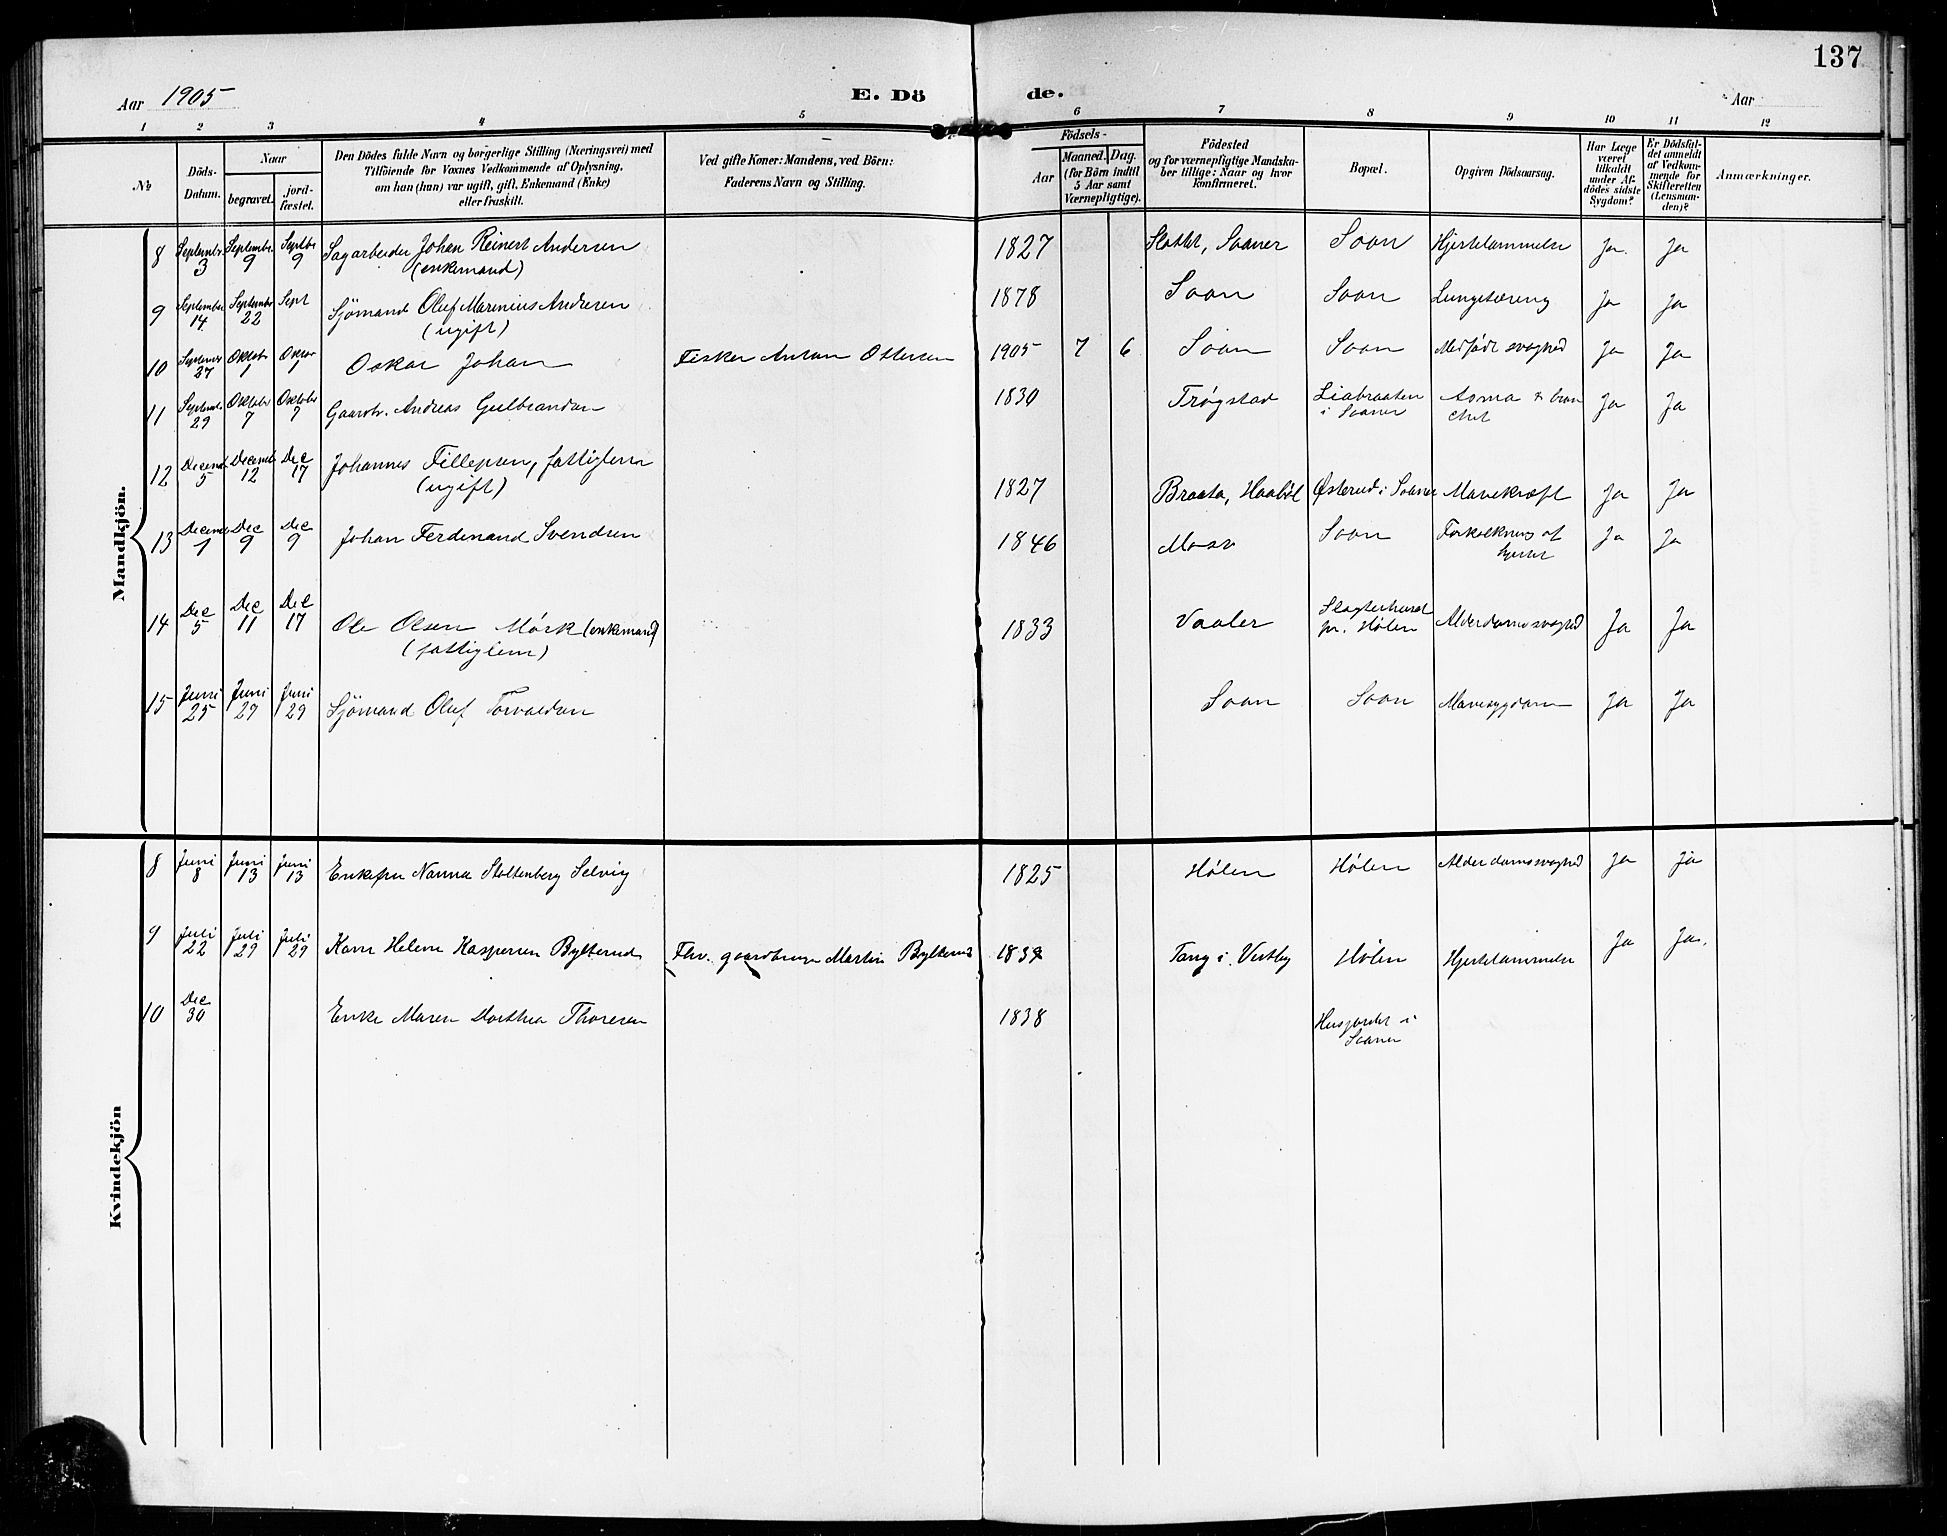 137
Aar 1905 E. Dö de. Aar
1 2 3 4 5 6 7 8 9 10 11 12
№
Döds-Datum.
Naar
begravet.
jordfæstet.
Den Dödes fulde Navn og borgerlige Stilling (Næringsvei) med
Tilföiende for Voxnes Vedkommende af Oplysning,
om han (hun) var ugift, gift, Enkemand (Enke)
eller fraskilt.
Ved gifte Koner: Mandens, ved Börn:
Faderens Navn og Stilling.
Födsels-
Aar
Maaned. Dag.
(for Börn indtil
5 Aar samt
Værnepligtige).
Födested
og for værnepligtige Mandskaber tillige: Naar og hvor
konfirmeret.
Bopæl.
Opgiven Dödsaarsag.
Har Læge
været
tilkaldt
under Afdödes sidste
Sygdom?
Er Dödsfaldet anmeldt
af Vedkommende for
Skifteretten
(Lensmanden)?
Anmærkninger.
Mandkjön.
8 Septembr. 3 Septembr. 9 Septbr 9 Sagarbeider Johan Reinert Andersen (enkemand) 1827 Slottet, Saaner Soon Hjertelammelse Ja. Ja
9 September 14 Septembr 22 Sept Sjömand Oluf Marinius Andresen (ugift) 1878 Soon Soon Lungetæring Ja Ja
10 27 Oktobr 1 1 Oskar Johan Fisker Anton Ottersen 1905 7 6 Soon Soon Medfödt svaghed Ja Ja
11 29 Oktobr 7 Oktobr 7 Gaardbr. Andreas Gulbrandsen 1830 Trøgstad Liabraaten i Saaner Asma Ja Ja
12 5 12 Dec 17 Johannes Fillepsen, fattiglem (ugift) 1827 Braata, Haabøl Østerud i Saaner Mavekræft Ja Ja
13 1 Dec 9 Dec 9 Johan Ferdinand Svendsen 1846 Moss Soon Forkalkning af hjertet Ja Ja
14 Dec 5 Dec 11 Dec 17 Ole Olsen Mörk (enkemand) (fattiglem) 1833 Vaaler pr. Hølen Alderdomssvaghed Ja Ja
15 Juni 25 Juni 29 Juni 29 Sjömand Oluf Torvaldsen Soon Soon Mavesygdom Ja Ja
Kvindekjön
8 Juni 8 Juni 13 Juni 13 Enkefru Nanna Stoltenberg Selvig 1825 Hølen Hølen Alderdomssvaghed Ja Ja
9 Juli 22 Juli 29 Juli 29 Karen Helene Kaspersen Bylterud Fhv. gaardbruger Martin Bylterud 1839 i Vestby Hølen Hjertelammelse Ja Ja.
10 Dec 30 Enke Maren Dorthea Thoresen 1838 Husjordet i Saaner